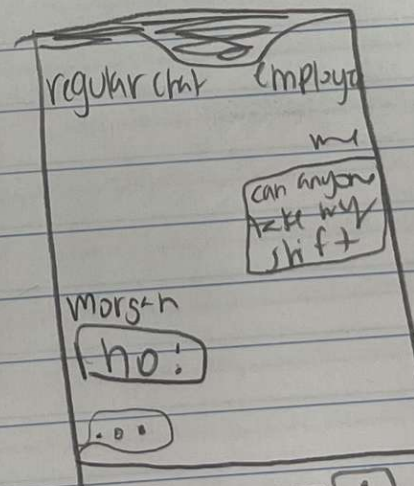 regular chat employe
me
can anyone
take my
shift
Morgan
no!
...